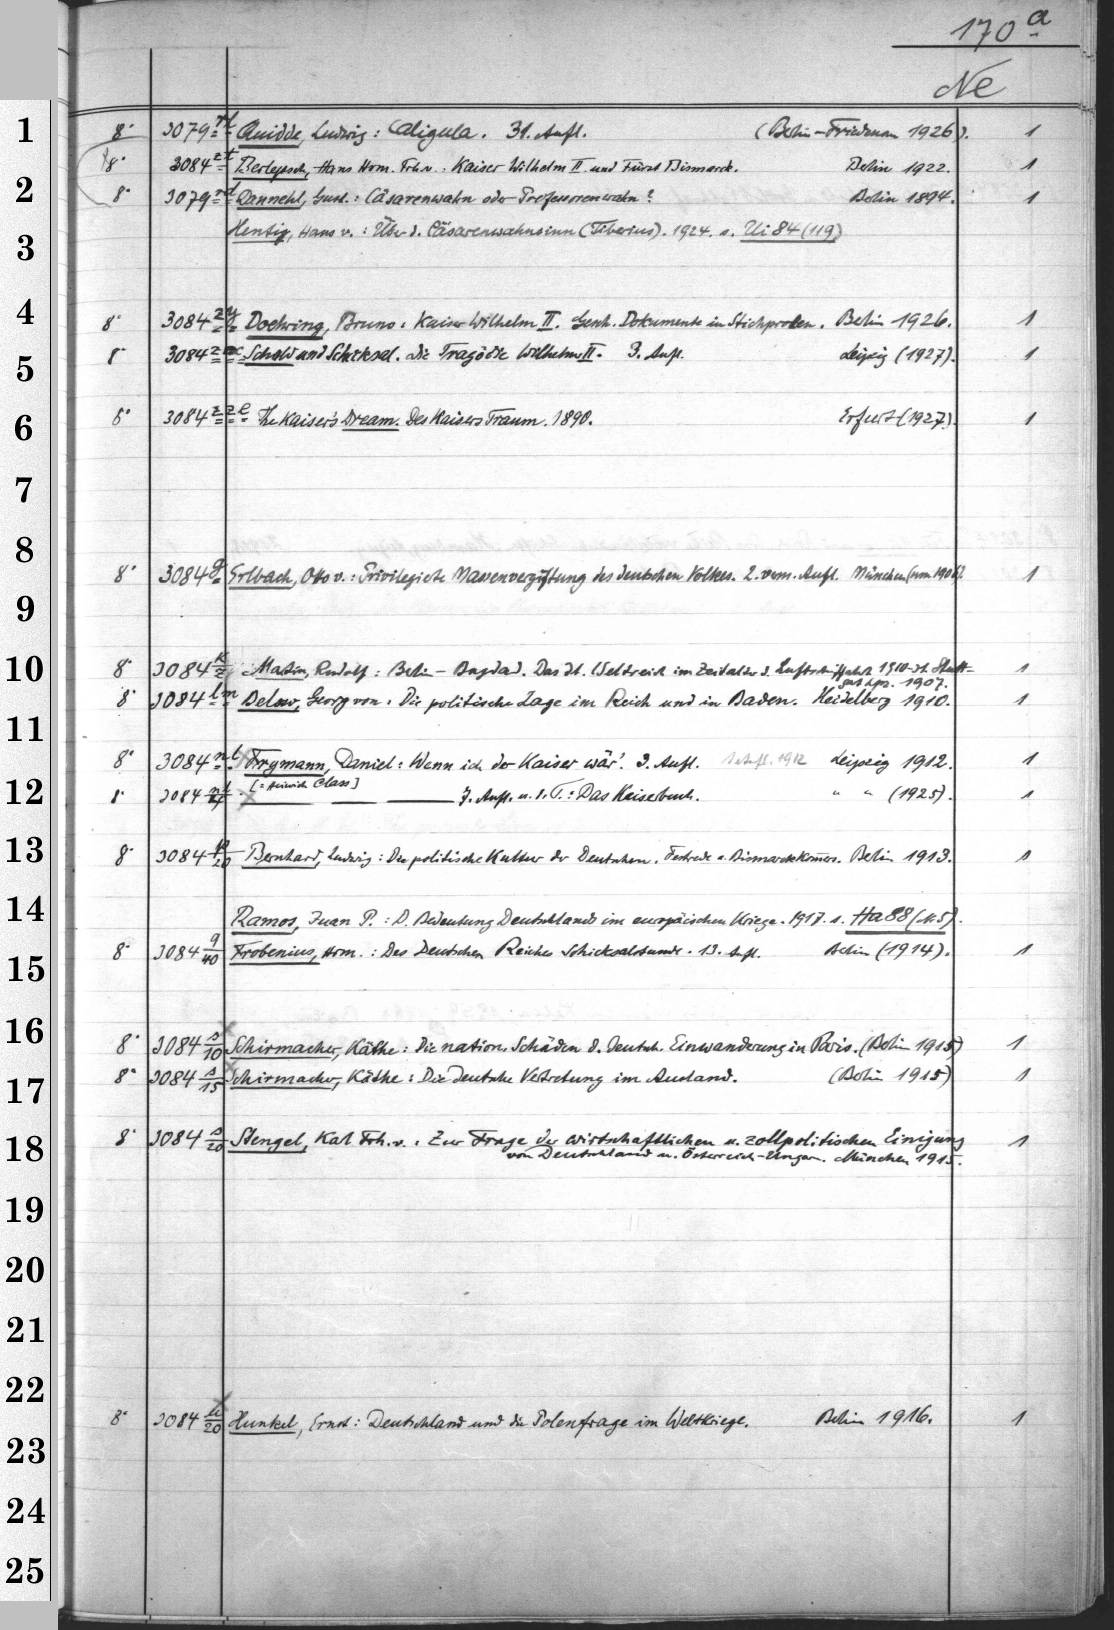 170 a
Ne
1 8° 3079 rl Quidde, Ludwig: Caligula. 31. Aufl. (Berlin-Friedenau 1926). 1
8° 3084 zt Berlepsch, Hans Herm. Frh. v.: Kaiser Wilhelm II. und Fürst Bismarck. Berlin 1922. 1
2 8° 3079 rd Dannehl, Gust.: Cäsarenwahn oder Professorenwahn? Berlin 1894. 1
3 Hentig, Hans v.: Über d. Cäsarenwahnsinn (Tiberius). 1924. s. Ui 84 (119)
4 8° 3084 zy Doehring, Bruno: Kaiser Wilhelm II. Gesch. Dokumente in Stichproben. Berlin 1926. 1
5 8° 3084 Schuld und Schicksal. Die Tragödie Wilhelms II. 3. Aufl. Leipzig (1927). 1
6 8° 3084 zze The Kaiser's Dream. Des Kaisers Traum. 1890. Erfurt (1927). 1
7
8 8° 3084 g Erlbach, Otto v.: Privilegierte Massenvergiftung des deutschen Volkes. 2. verm. Aufl. München (um 1906). 1
9
10 8° 3084 k/z Martin, Rudolf: Berlin – Bagdad. Das dt. Weltreich im Zeitalter d. Luftschiffahrt 1910-31. Stutt-
gart Lpz. 1907. 1
8° 3084 lm Below, Georg von: Die politische Lage im Reich und in Baden. Heidelberg 1910. 1
11
8° 3084 nt Frymann, Daniel: Wenn ich der Kaiser wär'. 3. Aufl. 1. Aufl. 1912 Leipzig 1912. 1
[= Heinrich Class]
12 8° 3084 — — 7. Aufl. u. d. T.: Das Kaiserbuch. " " (1925). 1
13 8° 3084 p/20 Bernhard, Ludwig: Die politische Kultur der Deutschen. Festrede z. Bismarckkommers. Berlin 1913. 1
14 Ramos, Juan P.: D. Bedeutung Deutschlands im europäischen Kriege. 1917. s. Ha 88 (N. 5).
15 8° 3084 q/40 Frobenius, Herm.: Des Deutschen Reiches Schicksalsstunde. 13. Aufl. Berlin (1914). 1
16 8° 3084 s/10 Schirmacher, Käthe: Die nation. Schäden d. deutsch. Einwanderung in Paris. (Berlin 1915) 1
17 8° 3084 s/15 Schirmacher, Käthe: Die deutsche Vertretung im Ausland. (Berlin 1915) 1
18 8° 3084 s/20 Stengel, Karl Frh. v.: Zur Frage der wirtschaftlichen u. zollpolitischen Einigung
von Deutschland u. Österreich-Ungarn. München 1915. 1
19
20
21
22
8° 3084 u/20 Hunkel, Ernst: Deutschland und die Polenfrage im Weltkriege. Berlin 1916. 1
23
24
25